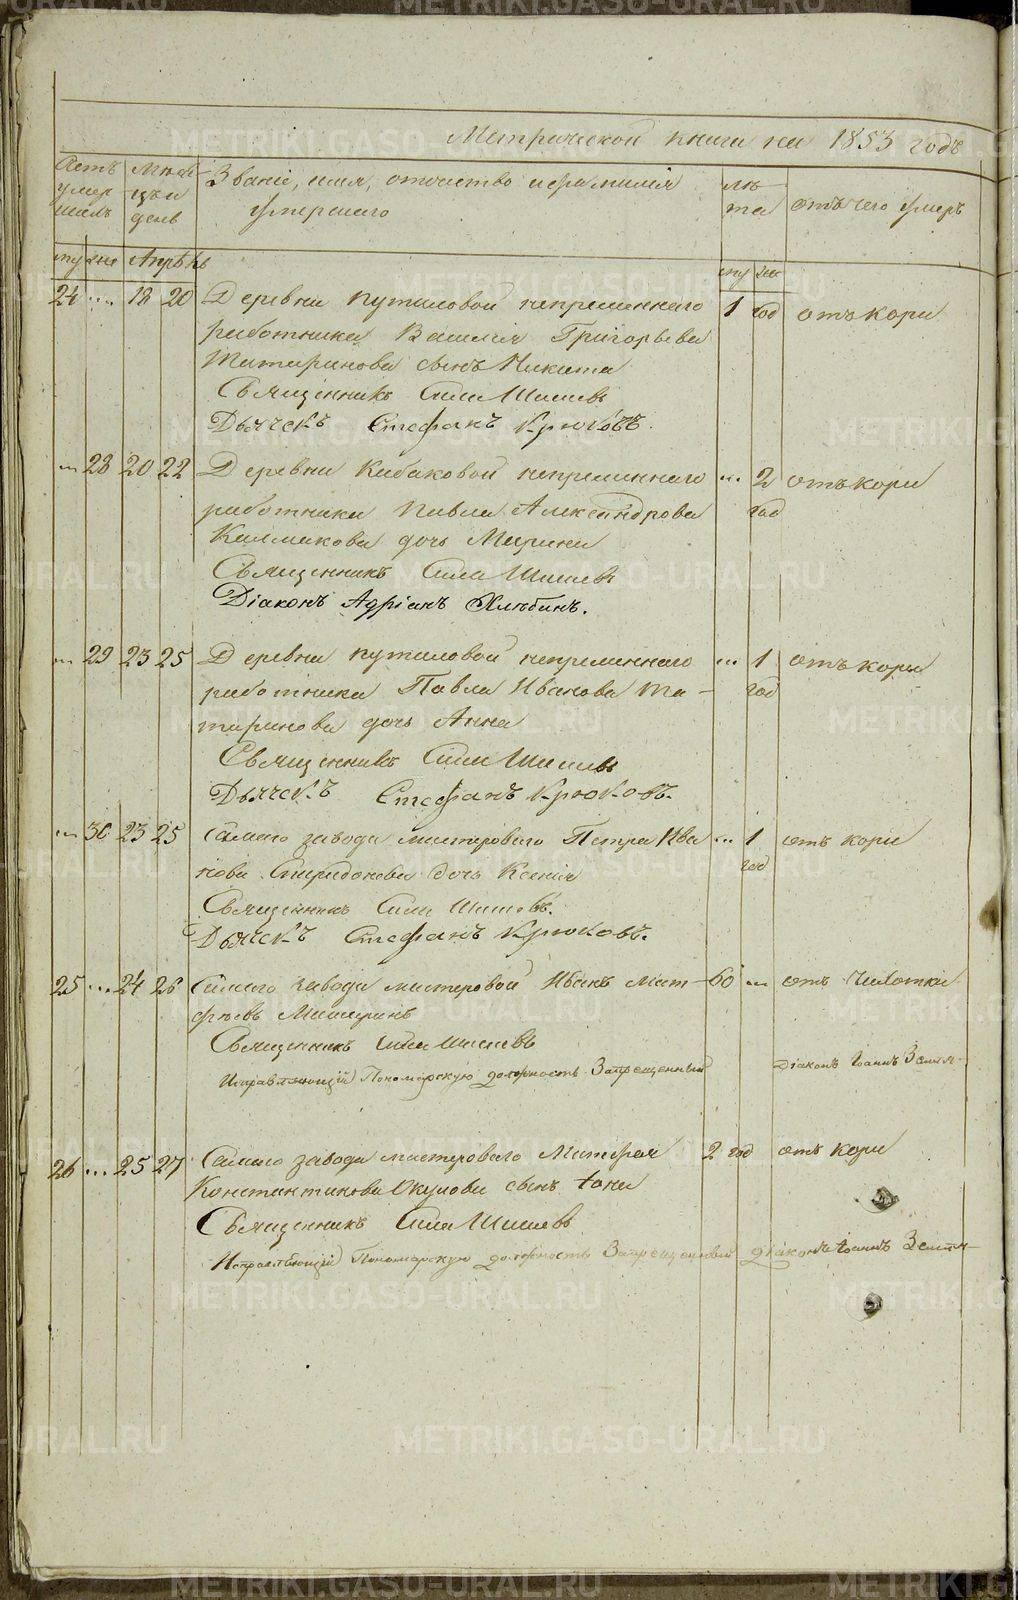 Метрической книги на 1853 годъ
Счетъ умер шихъ
Мѣся цъ и день
Званіе, имя, отчество и фамилія умершаго
лѣ та
отъ чего умеръ
му же Апрѣль му же
24 ... 18 20 Деревни Путиловой непременнаго 1 год отъ кори
работника Василія Григорьева
Татаринова сынъ Никита
Священникъ Сила Шишевъ
Дьячекъ Стефанъ Крюковъ.
... 28 20 22 Деревни Кабаковой непременнаго ... 2 отъ кори
работника Павла Александрова год
Калмакова дочь Марина
Священникъ Сила Шишевъ
Діаконъ Адріанъ Хлѣбинъ.
... 29 23 25 Деревни Путиловой непременнаго ... 1 отъ кори
работника Павла Иванова Та- год
таринова дочь Анна
Священникъ Сила Шишевъ
Дьячекъ Стефанъ Крюковъ.
... 30 23 25 Самаго завода мастероваго Петра Ива ... 1 отъ кори
нова Спиридонова дочь Ксенія год
Священникъ Сила Шишевъ.
Дьячекъ Стефанъ Крюковъ.
25 ... 24 26 Самаго завода мастеровой Иванъ Мат- 60 ... отъ Чихотки
фѣевъ
Священникъ Сила Шишевъ
Исправляющій Пономарскую должность Запрещенный Діаконъ Іоаннъ
26 ... 25 27 Самаго завода мастероваго Матфея 2 год отъ кори
Константинова Окулова сынъ Іона
Священникъ Сила Шишевъ
Исправляющій Пономарскую должность Запрещенный Діаконъ Іоаннъ
METRIKI.GASO-URAL.RU